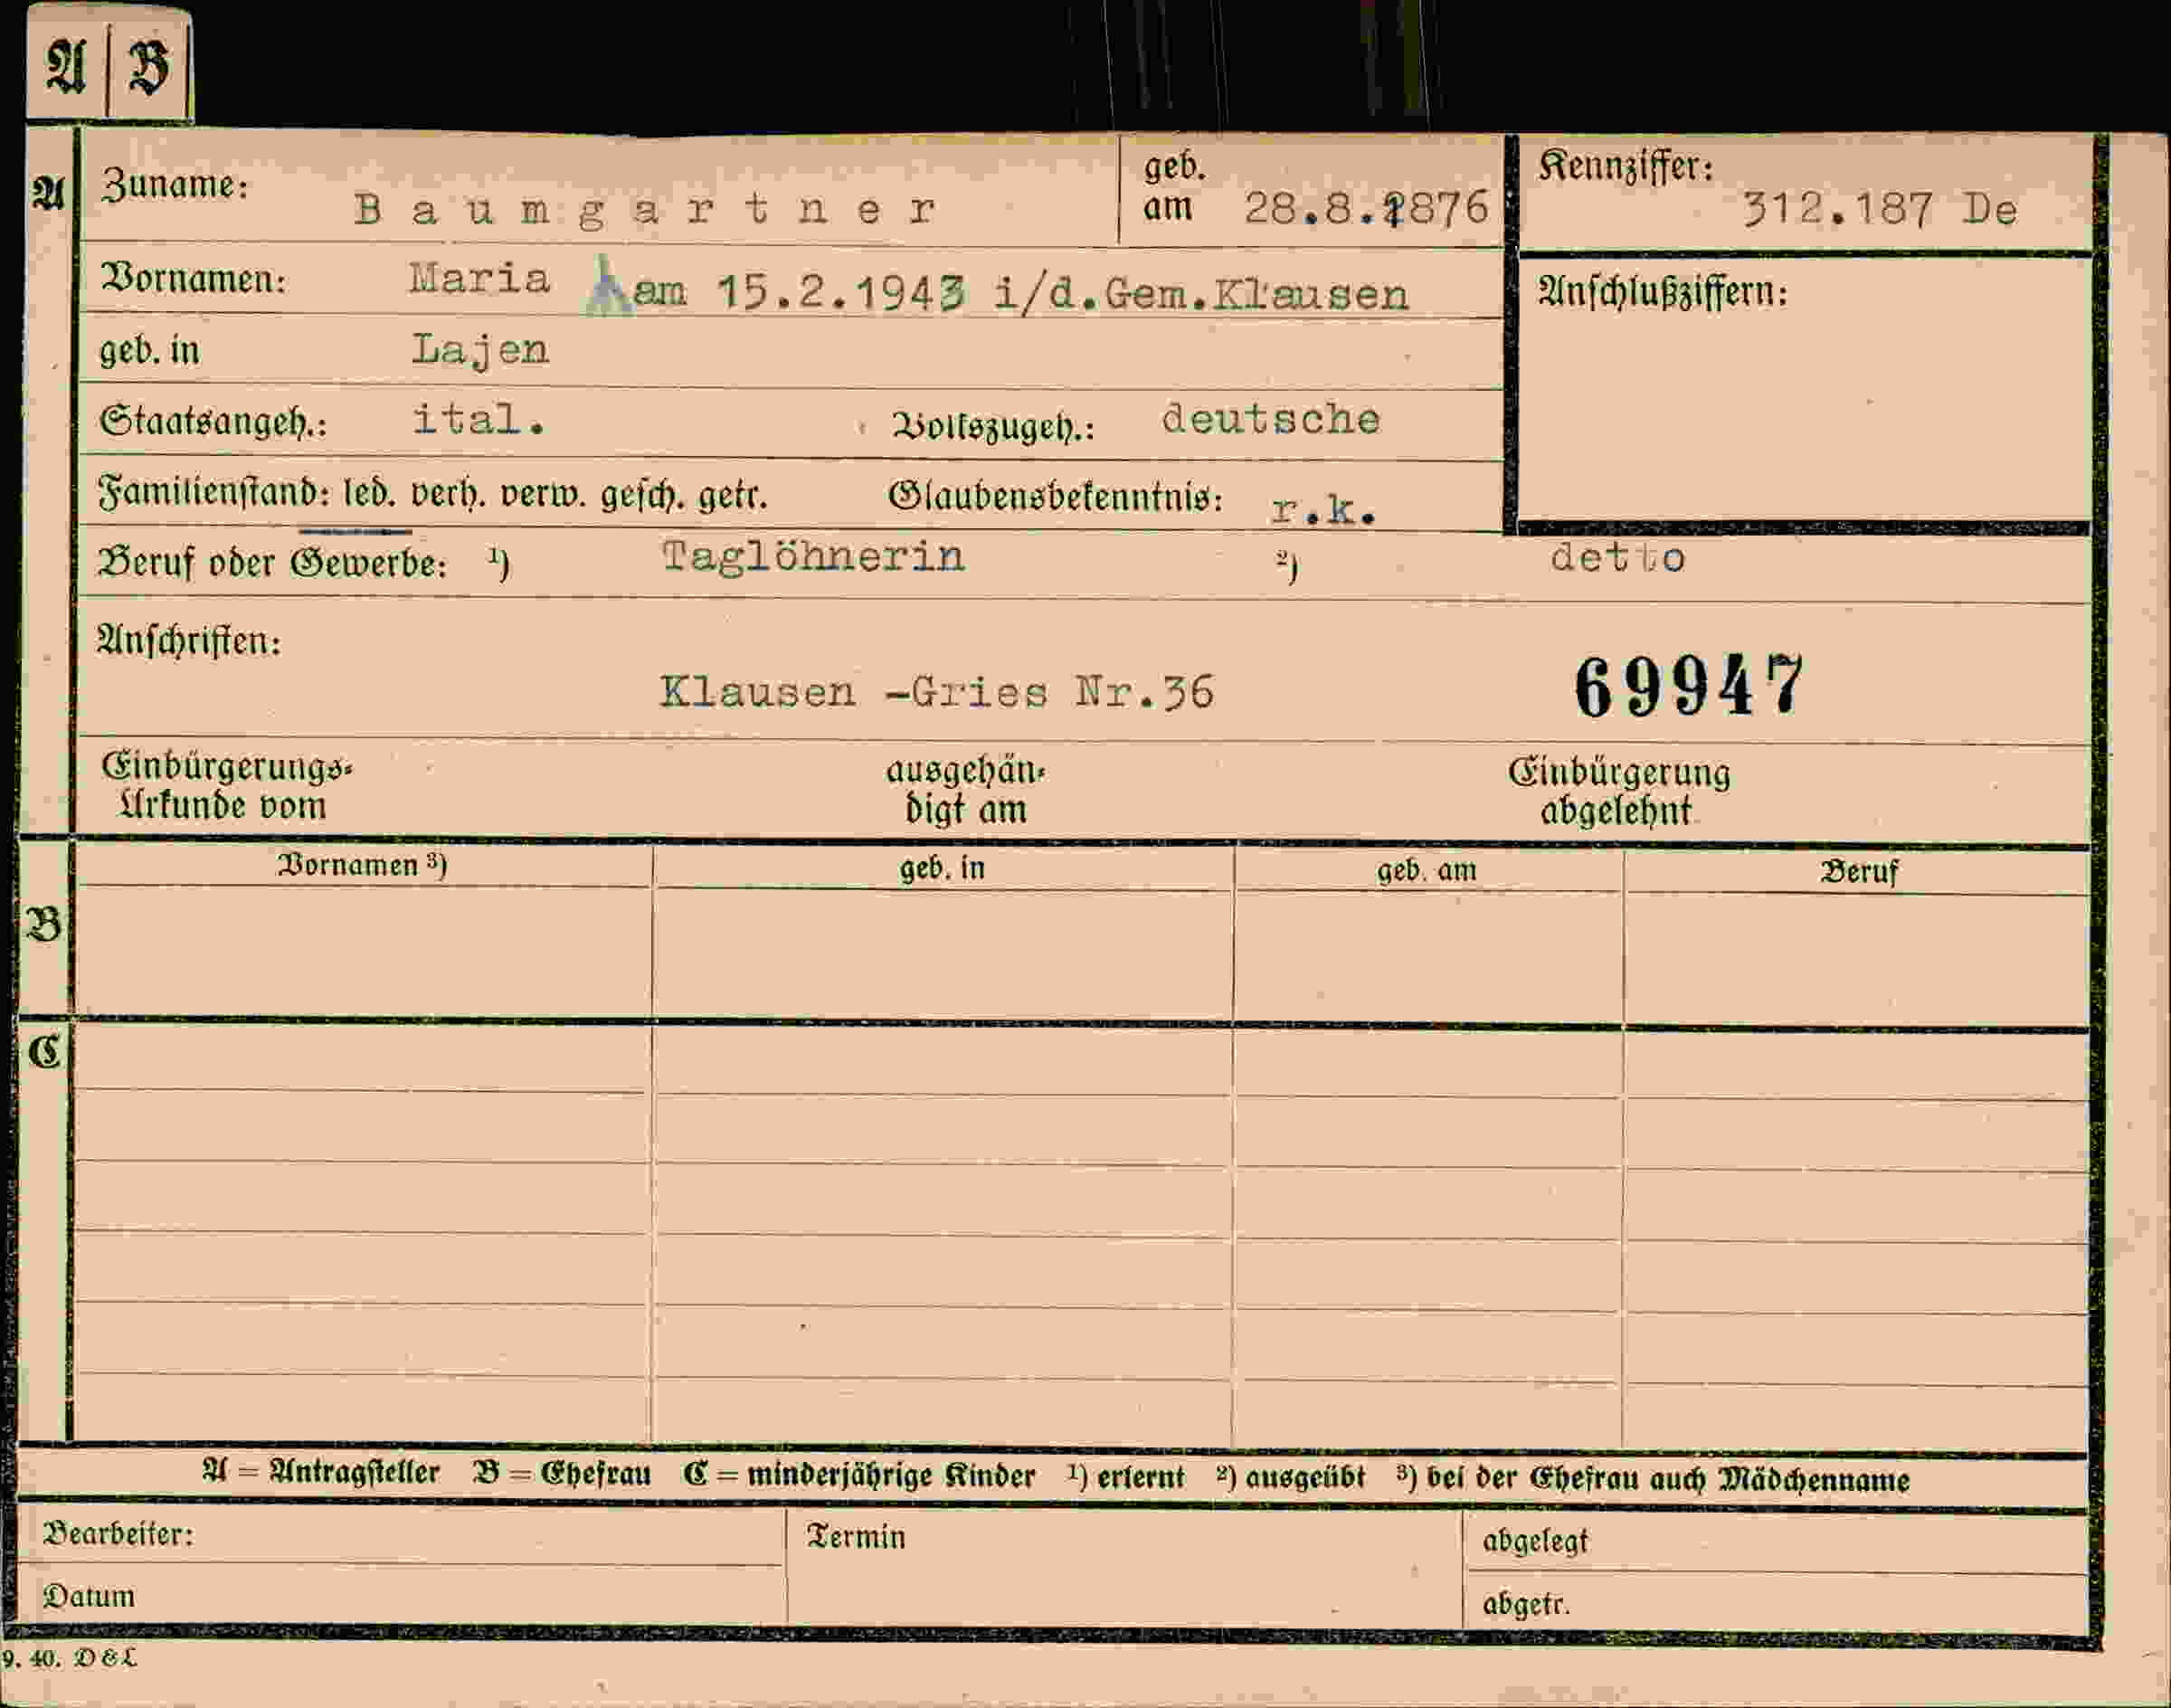 A B
A Zuname: Baumgartner geb. am 28.8.1876 Kennziffer: 312.187 De
Vornamen: Maria am 15.2.1943 i/d.Gem.Klausen Anschlußziffern:
geb. in Lajen
Staatsangeh.: ital. Volkszugeh.: deutsche
Familienstand: led. verh. verw. gesch. getr. Glaubensbekenntnis: r.k.
Beruf oder Gewerbe: ¹) Taglöhnerin ²) detto
Anschriften:
Klausen -Gries Nr.36 69947
Einbürgerungs- ausgehän- Einbürgerung
Urkunde vom digt am abgelehnt
Vornamen ³) geb. in geb. am Beruf
B
C
A = Antragsteller B = Ehefrau C = minderjährige Kinder ¹) erlernt ²) ausgeübt ³) bei der Ehefrau auch Mädchenname
Bearbeiter: Termin abgelegt
Datum abgetr.
9. 40. D & L